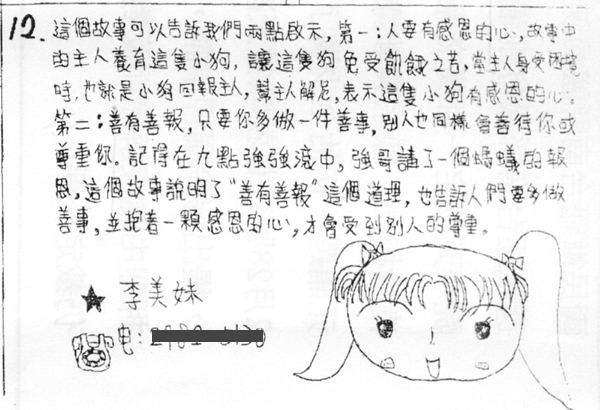 12. 這個故事可以告訴我們兩點啟示，第一：人要有感恩的心，故事中
的主人養有這隻小狗，讓這隻狗免受飢餓之苦，當主人身受困境
時，也就是小狗回報主人，幫主人解危，表示這隻小狗有感恩的心。
第二：善有善報，只要你多做一件善事，別人也同樣會善待你或
尊重你。記得在九點強強滾中，強哥講了一個螞蟻的報
恩，這個故事說明了“善有善報”這個道理，也告訴人們要多做
善事，並抱着一顆感恩的心，才會受到別人的尊重。
李美妹
电：